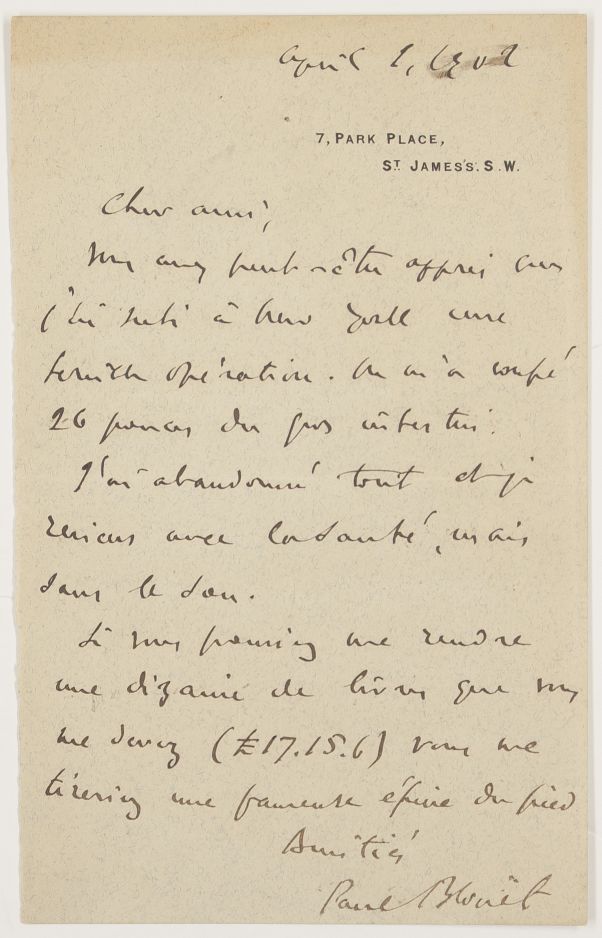 April 2, 1902
7, PARK PLACE,
ST JAMES'S. S.W.
Cher ami,
Vous avez peut-être appris que
j'ai subi à New York une
terrible opération. On m'a coupé
26 pouces du gros intestin.
J'ai abandonné tout et je
reviens avec la santé, mais
sans le sou.
Si vous pouviez me rendre
une dizaine de livres que vous
me devez (£17.15.6) vous me
tireriez une fameuse épine du pied
Amitiés
Paul Blouët